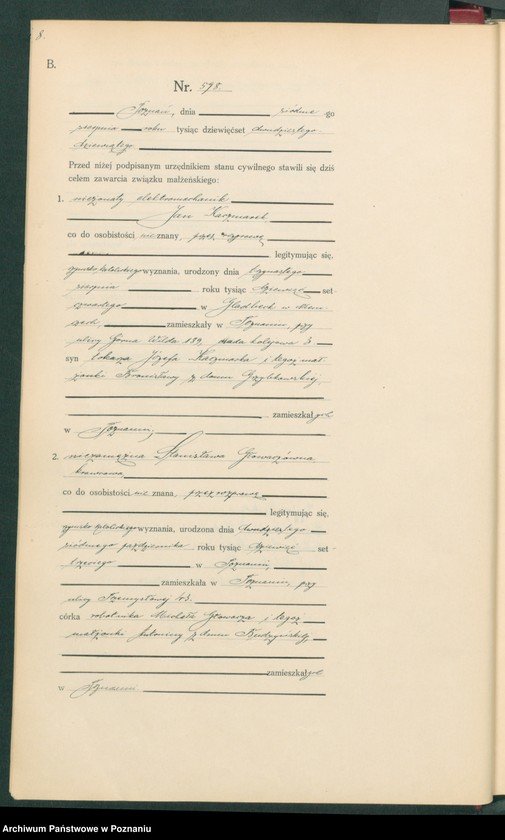 8.
B.
Nr. 598.
Poznań, dnia siódme go
sierpnia roku tysiąc dziewięćset dwudziestego
dziewiątego
Przed niżej podpisanym urzędnikiem stanu cywilnego stawili się dziś
celem zawarcia związku małżeńskiego:
1. nieżonaty elektromechanik
Jan Kaczmarek
co do osobistości nie znany, przez
legitymując się,
rzymsko katolickiego wyznania, urodzony dnia trzynastego
sierpnia roku tysiąc dziewięć set-
czwartego w Gladbeck w Niem-
czech, zamieszkały w Poznaniu, przy
ulicy Górna Wilda 139,
syn Józefa Kaczmarka i tegoż mał-
żonki Bronisławy z domu
zamieszkał ych
w Poznaniu,
2. niezamężna Stanisława
co do osobistości nie znana,
legitymując się,
rzymsko katolickiego wyznania, urodzona dnia dwudziestego
siódmego października roku tysiąc dziewięć set-
trzeciego w Poznaniu,
zamieszkała w Poznaniu, przy
ulicy Przemysłowej 43.
córka robotnika Michała i tegoż
małżonki Antoniny z domu
zamieszkał ych
w Poznaniu.
Archiwum Państwowe w Poznaniu